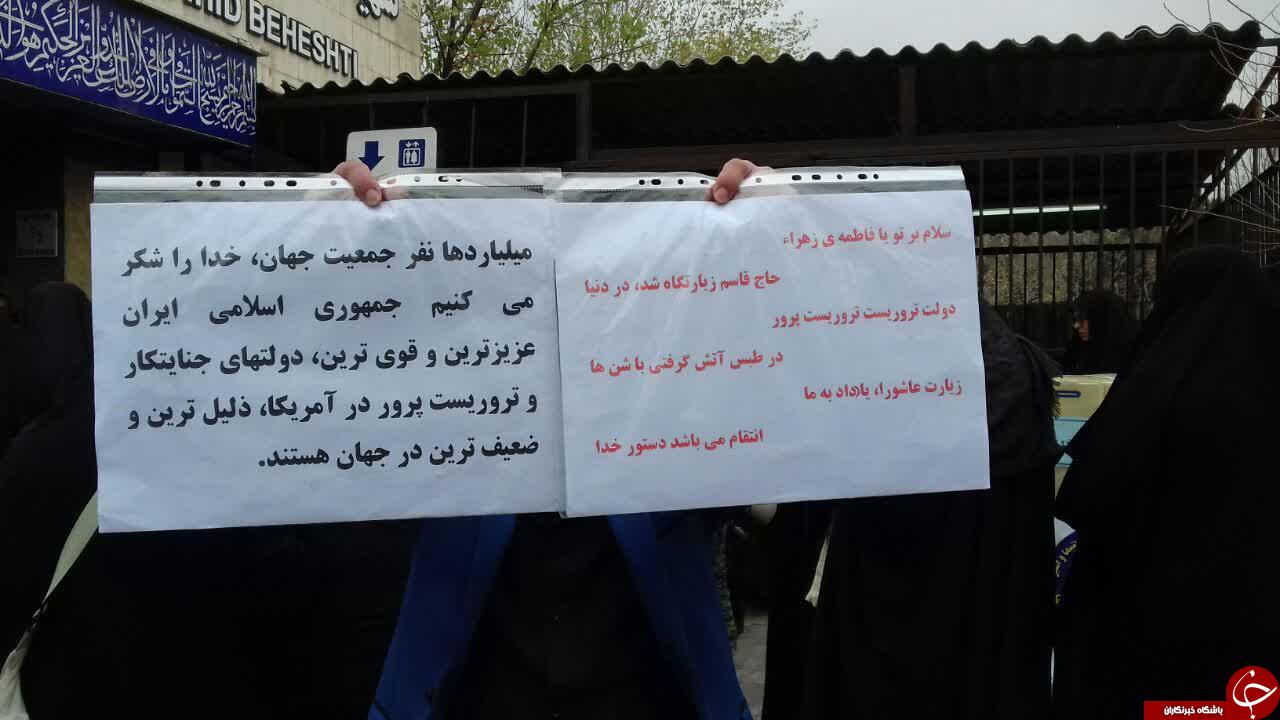 BEHESHTI
سلام بر تو یا فاطمه ی زهراء
حاج قاسم زیارتگاه شد، در دنیا
دولت تروریست تروریست پرور
در طبس آتش گرفتی با شن ها
زیارت عاشورا، یادداد به ما
انتقام می باشد دستور خدا
میلیاردها نفر جمعیت جهان، خدا را شکر
می کنیم جمهوری اسلامی ایران
عزیزترین و قوی ترین، دولتهای جنایتکار
و تروریست پرور در آمریکا، ذلیل ترین و
ضعیف ترین در جهان هستند.
باشگاه خبرنگاران